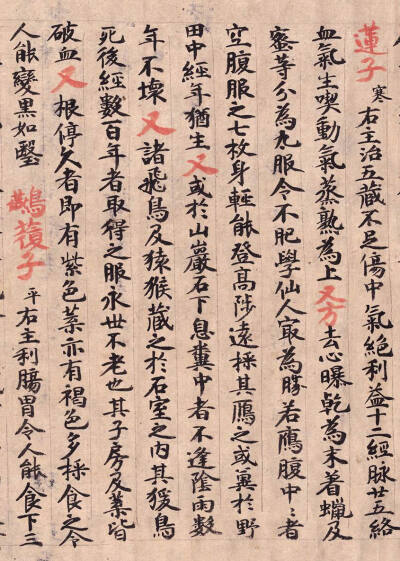 蓮子 寒 右主治五藏不足傷中氣絕利益十二經脉廿五絡
血氣生喫動氣蒸熟為上又方去心曝乾為末着蠟及
蜜等分為丸服令不肥學仙人冣為勝若鴈腹中〻者
空腹服之七枚身輕能登高陟遠採其鴈之或糞於野
田中經年猶生又或於山巖石下息糞中者不逢陰雨數
年不壞又諸飛鳥及猿猴藏之於石室之內其猨鳥
死後經數百年者取得之服永世不老也其子房及葉皆
破血又根停久者即有紫色葉亦有褐色多採食之令
人能變黑如瑿
覆子 平 右主利腸胃令人能食下三